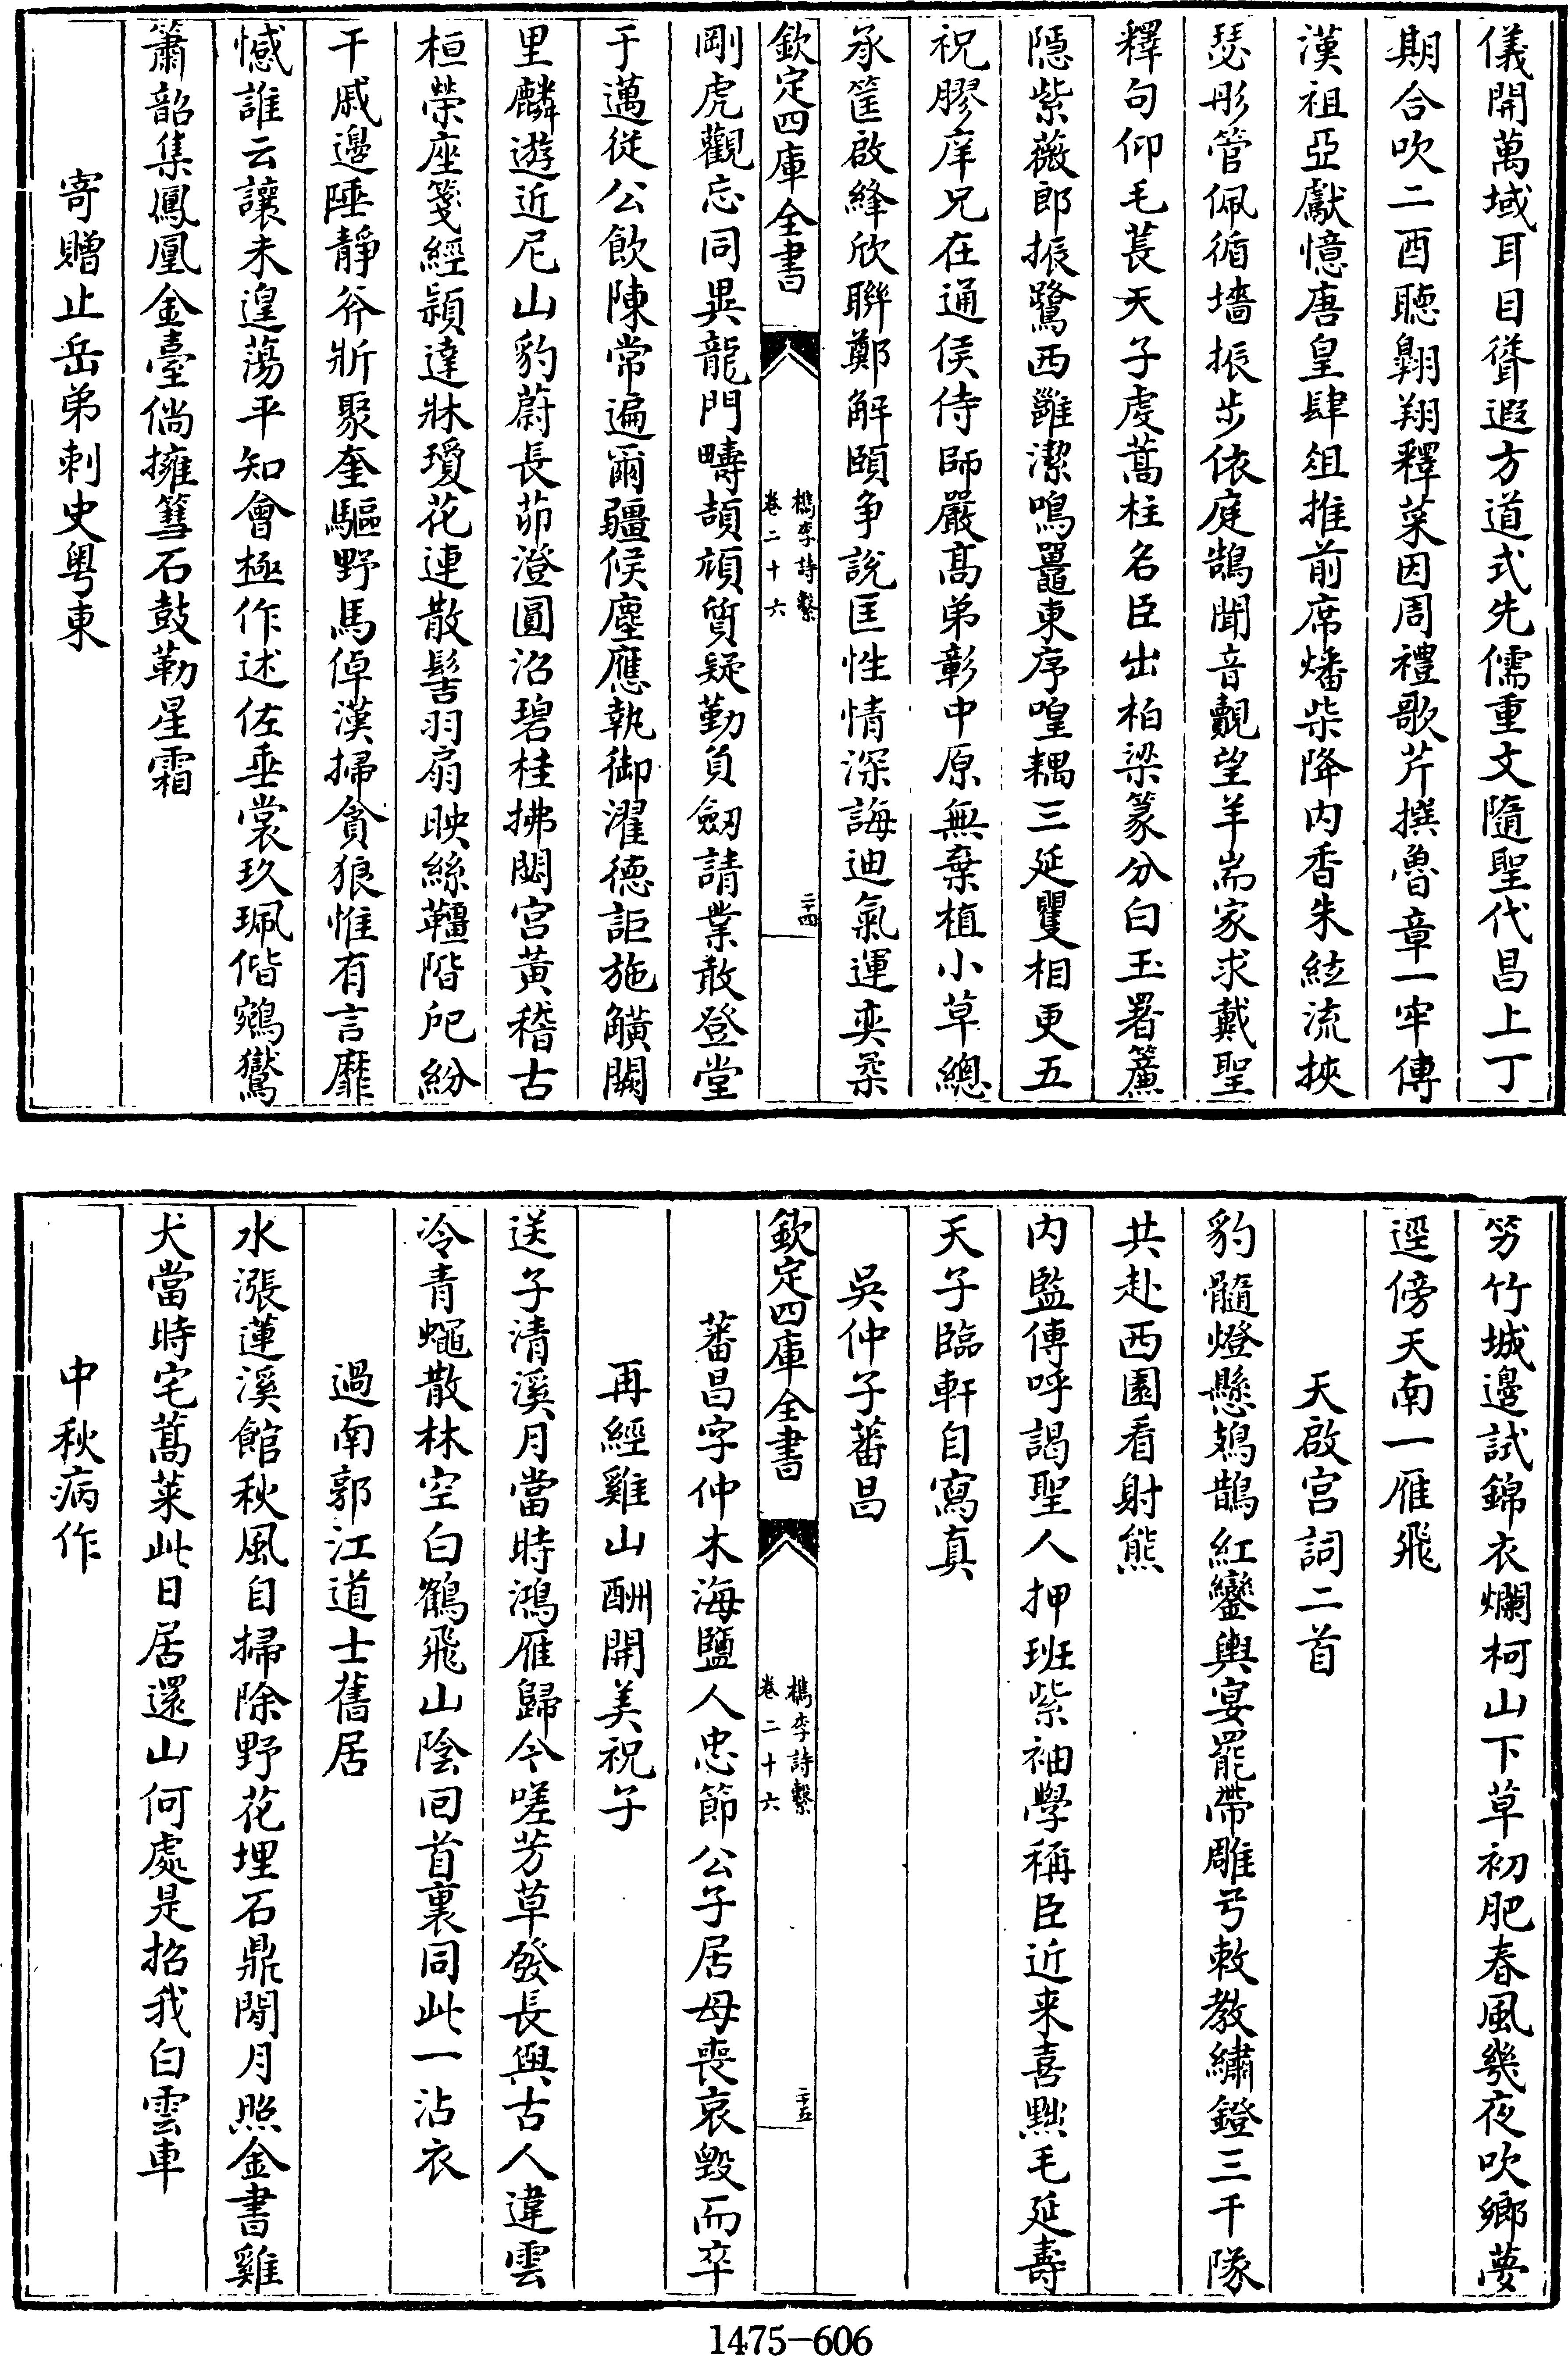 儀開萬域耳目聳遐方道式先儒重文隨聖代昌上丁
期合吹二酉聽翺翔釋菜因周禮歌芹撰魯章一牢傳
漢祖亞獻憶唐皇肆俎推前席燔柴降内香朱絃流挾
瑟彤管佩循墻振步依庭鵠聞音覿望羊耑家求戴聖
釋句仰毛萇天子虔蒿柱名臣出柏梁篆分白玉署簾
隱紫薇郎振鷺西雝潔鳴鼉東序喤耦三延矍相更五
祝膠庠兄在通侯侍師嚴髙弟彰中原無棄植小草總
承筐啟絳欣聯鄭解頤争說匡性情深誨迪氣運奕柔
欽定四庫全書
檇李詩繫
卷二十六
二十四
剛虎觀忘同異龍門疇頡頏質疑勤負劒請業敢登堂
于邁從公飲陳常遍爾疆候塵應執御濯徳詎施觵闕
里麟遊近尼山豹蔚長茆澄圓沼碧桂拂閟宫黄稽古
桓榮座箋經頴達牀瓊花連散髻羽扇映絲韁階戺紛
干戚邊陲靜斧斨聚奎驅野馬倬漢掃貪狼惟有言靡
憾誰云讓未遑蕩平知會極作述佐垂裳玖珮偕鵷鸑
簫韶集鳳凰金臺倘擁篲石鼓勒星霜
寄贈止岳弟刺史粤東
竻竹城邊試錦衣爛柯山下草初肥春風幾夜吹鄉夢
逕傍天南一雁飛
天啟宫詞二首
豹髓燈懸鳷鵲紅鑾輿宴罷帶雕弓敕教繡鐙三千隊
共赴西園看射熊
内監傳呼謁聖人押班紫袖學稱臣近来喜黜毛延壽
天子臨軒自寫真
吳仲子蕃昌
欽定四庫全書
檇李詩繫
卷二十六
二十五
蕃昌字仲木海鹽人忠節公子居母喪哀毁而卒
再經雞山酬開美祝子
送子清溪月當時鴻雁歸今嗟芳草發長與古人違雲
冷青蠅散林空白鶴飛山陰回首裏同此一沾衣
過南郭江道士舊居
水漲蓮溪館秋風自掃除野花埋石鼎閒月照金書雞
犬當時宅蒿萊此日居還山何處是招我白雲車
中秋病作
1475-606